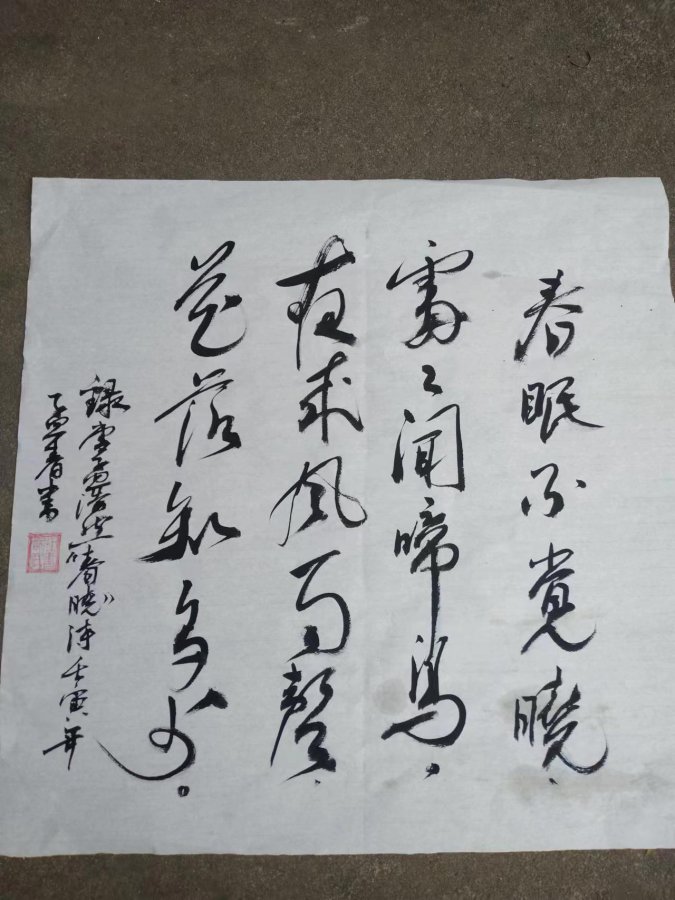 春眠不觉曉、
處々闻啼鸟，
夜来风雨聲、
花落知多少。
録唐孟浩然《春晓》诗壬寅年
春书